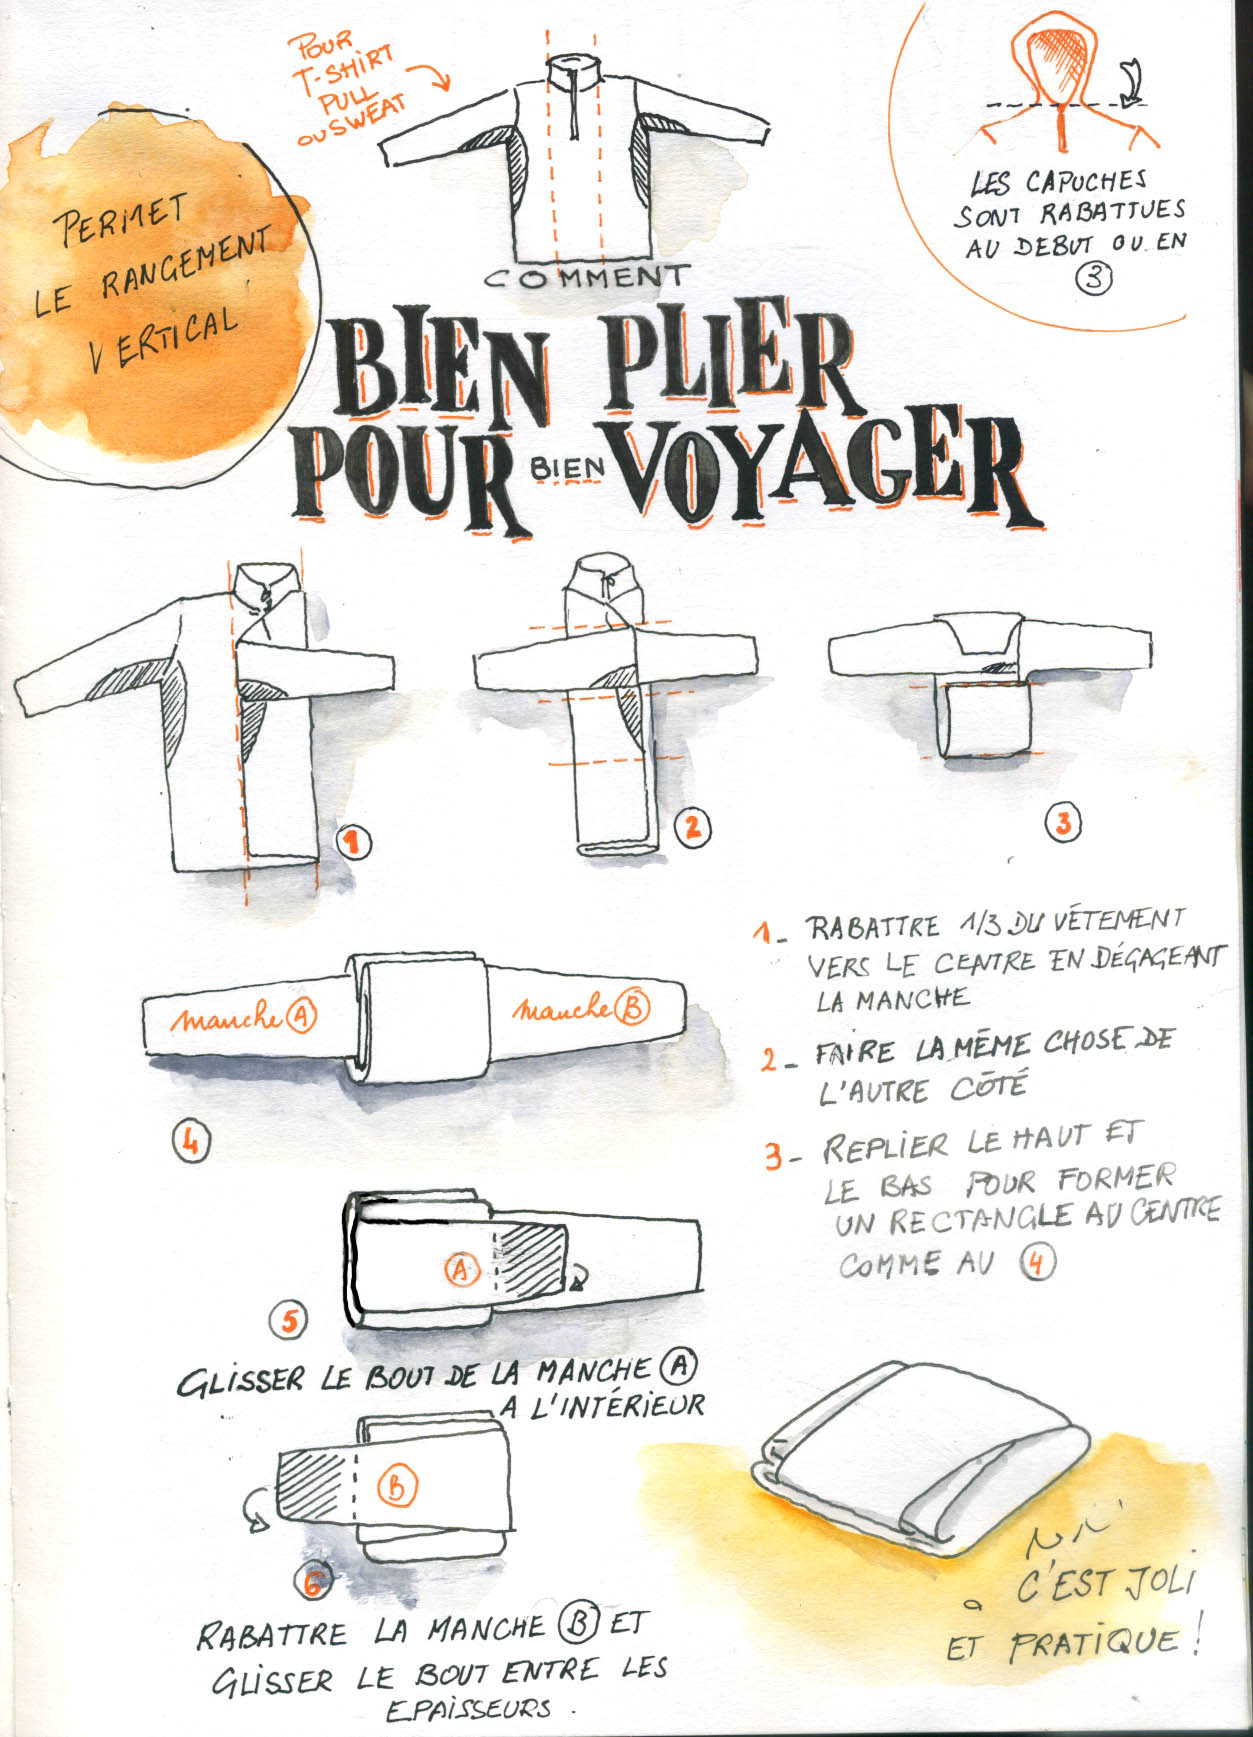 POUR
T-SHIRT
PULL
OU SWEAT
PERMET
LE RANGEMENT
VERTICAL
LES CAPUCHES
SONT RABATTUES
AU DEBUT OU EN
3
COMMENT
BIEN PLIER
POUR BIEN VOYAGER
1
2
3
1- RABATTRE 1/3 DU VÊTEMENT
VERS LE CENTRE EN DÉGAGEANT
LA MANCHE
2- FAIRE LA MÊME CHOSE DE
L'AUTRE CÔTÉ
3- REPLIER LE HAUT ET
LE BAS POUR FORMER
UN RECTANGLE AU CENTRE
COMME AU 4
manche A
manche B
4
A
5
GLISSER LE BOUT DE LA MANCHE A
A L'INTÉRIEUR
B
6
RABATTRE LA MANCHE B ET
GLISSER LE BOUT ENTRE LES
EPAISSEURS.
C'EST JOLI
ET PRATIQUE!